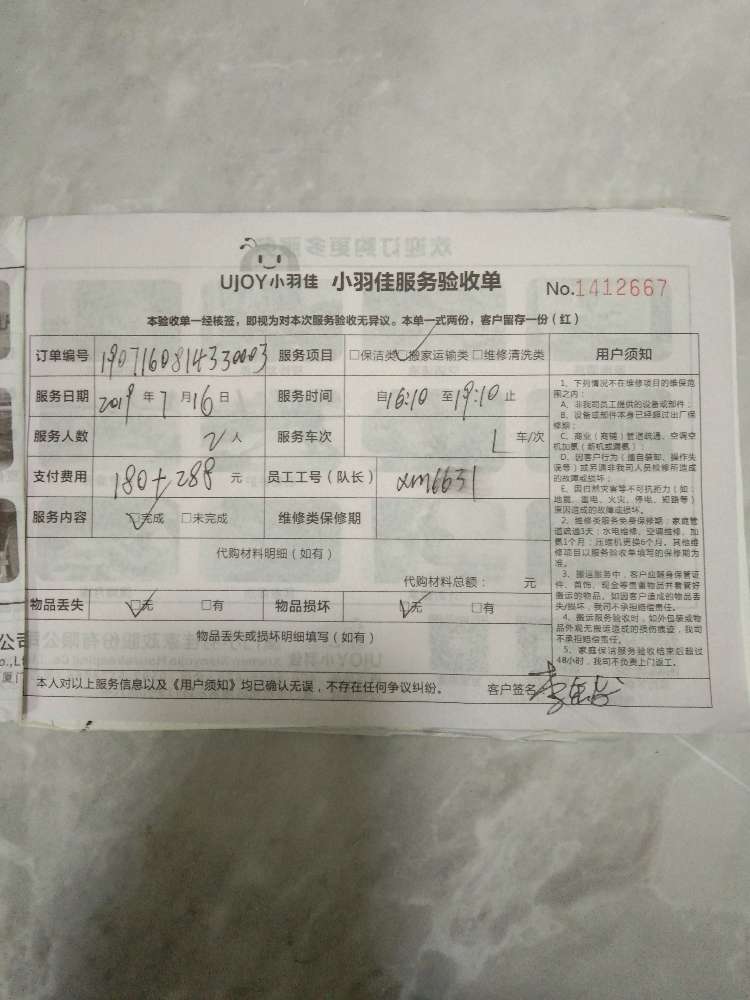 UJOY小羽佳 小羽佳服务验收单
No.1412667
本验收单一经核签，即视为对本次服务验收无异议。本单一式两份，客户留存一份（红）
订单编号 1907160814330003 服务项目 □保洁类□搬家运输类 □维修清洗类 用户须知
服务日期 2019 年 7 月 16 日 服务时间 自16:10 至19:10 止
服务人数 2 人 服务车次 1 车/次
支付费用 180+288 元 员工工号（队长） xm6631
服务内容 □完成 □未完成 维修类保修期
代购材料明细（如有）
代购材料总额： 元
物品丢失 □无 □有 物品损坏 □无 □有
物品丢失或损坏明细填写（如有）
本人对以上服务信息以及《用户须知》均已确认无误，不存在任何争议纠纷。 客户签名
1、下列情况不在维修项目的维保范
围之内：
A、非我司员工提供的设备或部件；
B、设备或部件本身已经超过出厂保
修期；
C、商业（商铺）管道疏通、空调空
机加氨（新机或漏氨）；
D、因客户行为（擅自装卸、操作失
误等）或另请非我司人员检修所造成
的故障或损坏；
E、因自然灾害等不可抗拒力（如：
地震、雷电、火灾、停电、短路等）
原因造成的故障或损坏。
2、维修类服务免费保修期：家庭管
道疏通3天；水电维修、空调维修、加
氨1个月；压缩机更换6个月。其他维
修项目以服务验收单填写的保修期为
准。
3、搬运服务中，客户应随身保管证
件、首饰、现金等贵重物品并看管好
搬运的物品。如因客户造成的物品丢
失/损坏，我司不承担赔偿责任。
4、搬运服务验收时，如外包装或物
品外观无搬运造成的损伤痕迹，我司
不承担赔偿责任。
5、家庭保洁服务验收结束后超过
48小时，我司不负责上门返工。
公司
o.,L
厦门